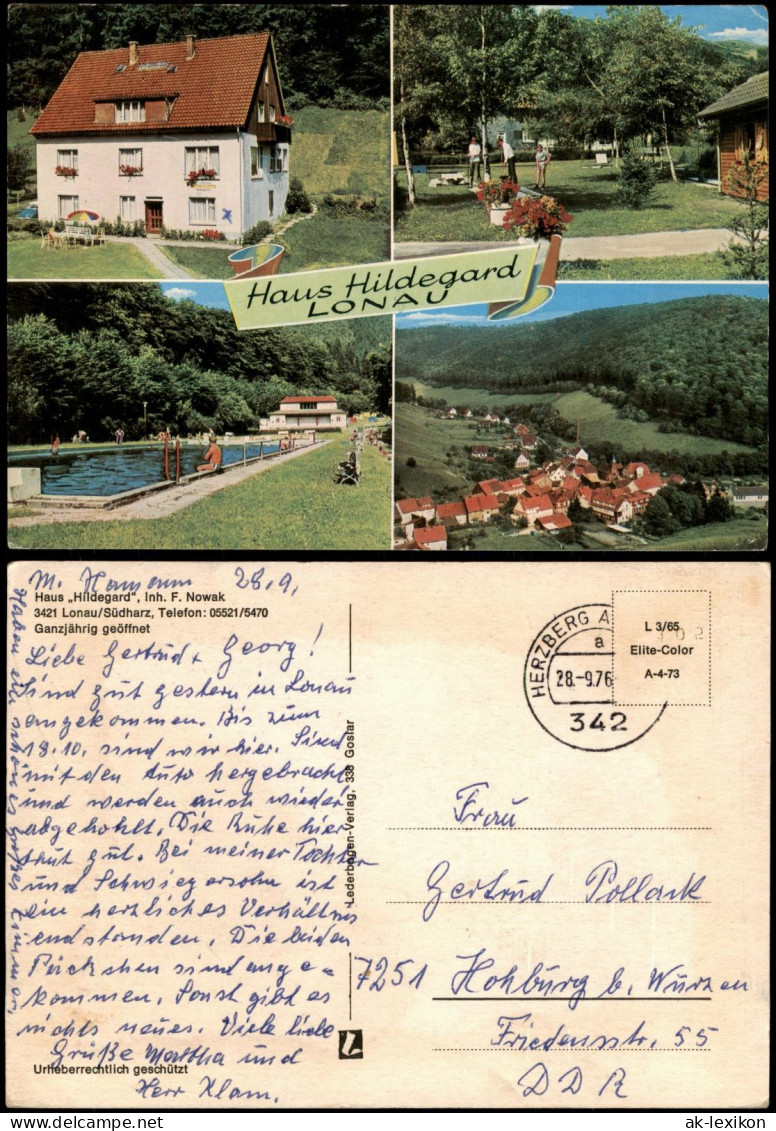 Haus Hildegard
LONAU
28.9.
Haus „Hildegard", Inh. F. Nowak
3421 Lonau/Südharz, Telefon: 05521/5470
Ganzjährig geöffnet
Liebe Gertrud + Georg!
Sind gut gestern in Lonau
angekommen. Bis zum
18.10. sind wir hier. Sind
mit den Auto hergebracht
und werden auch wieder
abgehohlt. Die Ruhe hier
thut gut. Bei meiner Tochter
und Schwiegersohn ist
ein herzliches Verhältnis
endstanden. Die beiden
Päckchen sind ange-
kommen. Sonst gibt es
nichts neues. Viele liebe
Grüße Martha und
Herr Klam.
Haben ein schönes großes Zimmer,
Urheberrechtlich geschützt
Lederbogen-Verlag, 338 Goslar
HERZBERG A
a
28.-9.76
342
L 3/65
Elite-Color
A-4-73
Frau
Gertrud Pollack
7251 Hohburg b. Wurzen
Friedensstr. 55
DDR
www.ak-lexikon.de
ak-lexikon.com